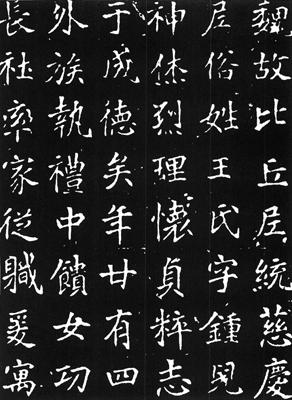 魏故比丘尼統慈慶
尼俗姓王氏字鍾兒
神休烈理懷貞粹志
于成德矣年廿有四
外族執禮中饋女功
長社率家從職爰寓